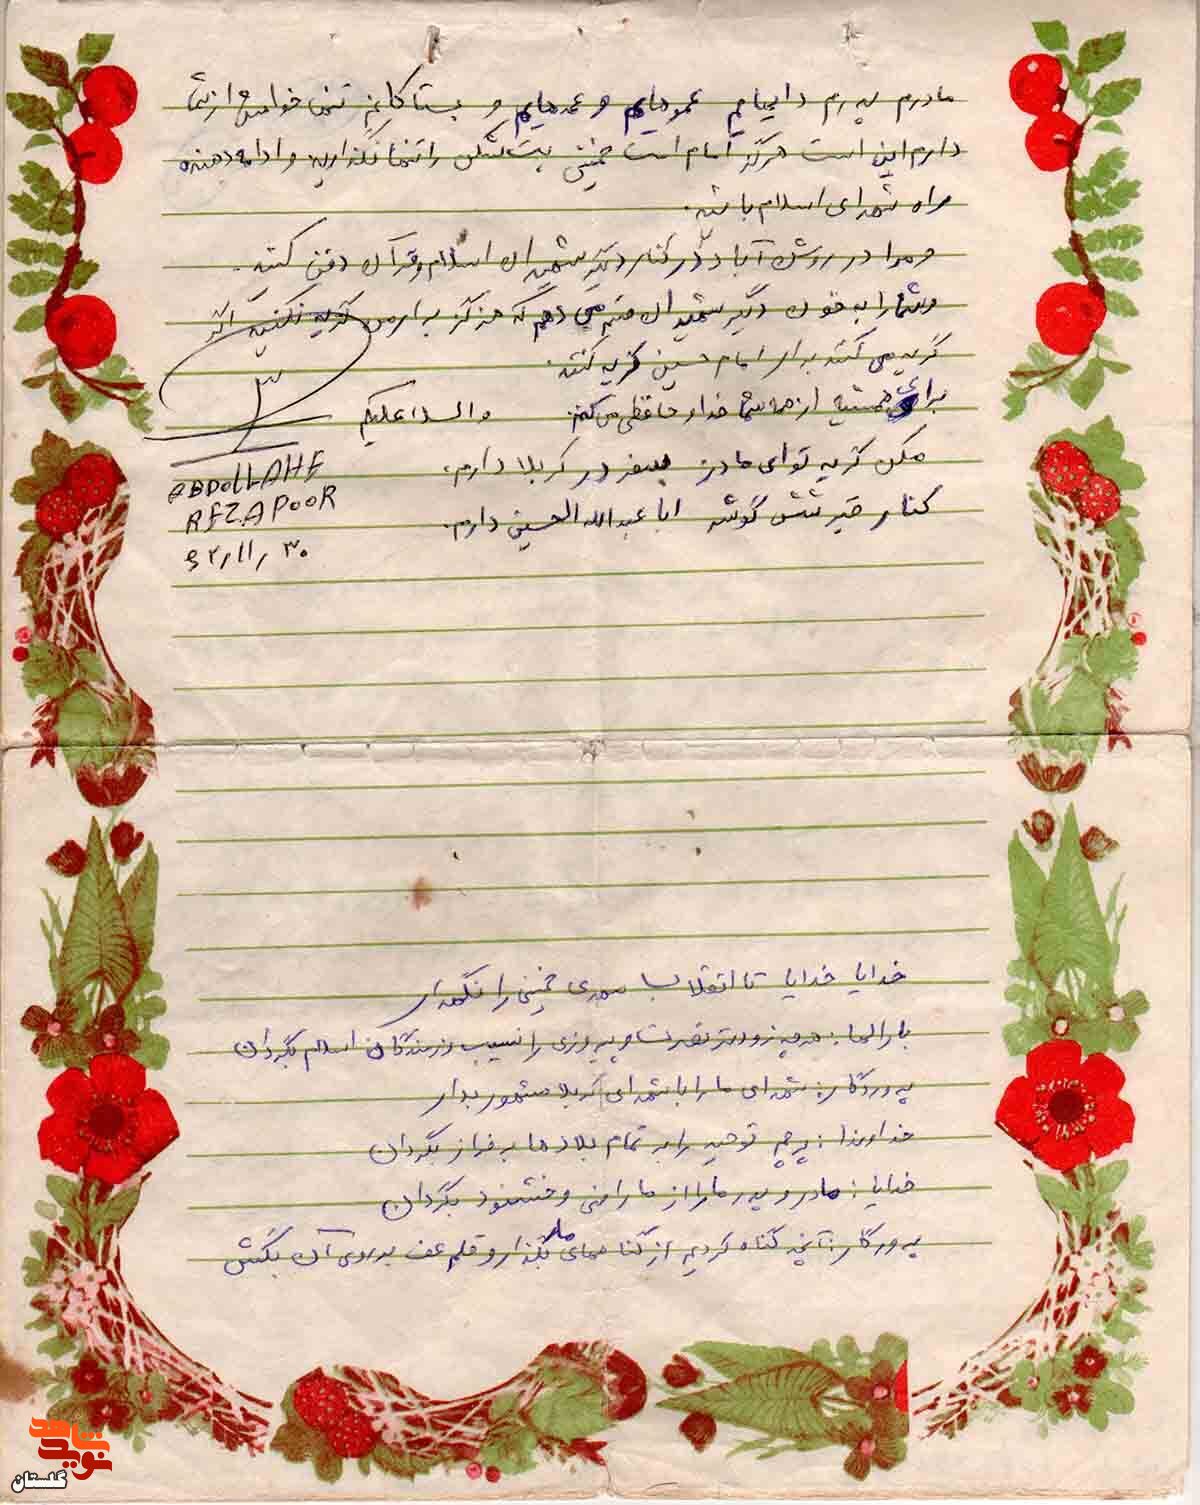 مادرم پدرم داییهایم عموهایم و عمه‌هایم و بستگانم تنها خواهش از شما
دارم این است هرگز امام است خمینی بت شکن را تنها نگذارید و ادامه دهنده
راه شهدای اسلام باشید.
و مرا در روشن آباد در کنار دیگر شهیدان اسلام و قرآن دفن کنید.
و شما را به خون دیگر شهیدان قسم می دهم که هرگز برای من گریه نکنید اگر
گریه می کنید برای امام حسین گریه کنید.
برای همیشه از همه شما خداحافظی می کنم. والسلام علیکم
مکن گریه تو ای مادر سفر در کربلا دارم.
کنار قبر شش گوشه ابا عبدالله الحسین دارم.
ABDOLLAHE
REZAPOOR
۶۲/۱۱/۳۰
خدایا خدایا تا انقلاب مهدی خمینی را نگهدار
بارالها: هر چه زودتر نصرت و پیروزی را نسیب رزمندگان اسلام بگردان
پروردگار: شهدای ما را با شهدای کربلا مشهور بدار
خداوندا: پرچم توحید را بر تمام بلادها برفراز بگردان
خدایا: مادر و پدر ما را از ما راضی و خشنود بگردان
پرورگار: آنچه گناه کردیم از گناههای ما بگذار و قلم عف بر روی آن بکش
شاهد
نوید
گلستان